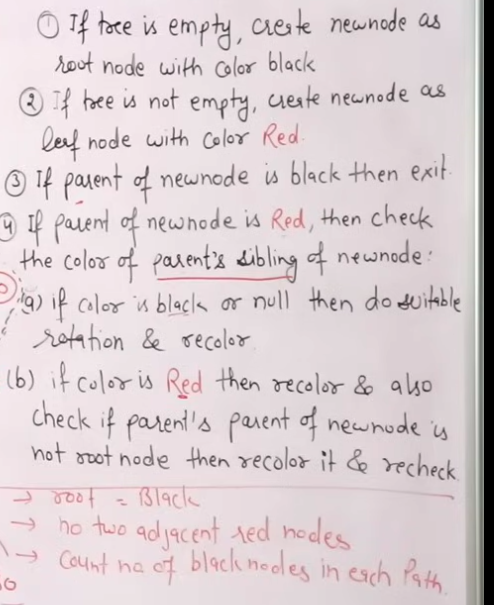 ① If tree is empty, create newnode as
root node with color black
② If tree is not empty, create newnode as
leaf node with color Red.
③ If parent of newnode is black then exit.
④ If parent of newnode is Red, then check
the color of parent's sibling of newnode:
(a) if color is black or null then do suitable
rotation & recolor
(b) if color is Red then recolor & also
check if parent's parent of newnode is
not root node then recolor it & recheck
→ root = Black
→ no two adjacent red nodes
→ Count no of black nodes in each Path.